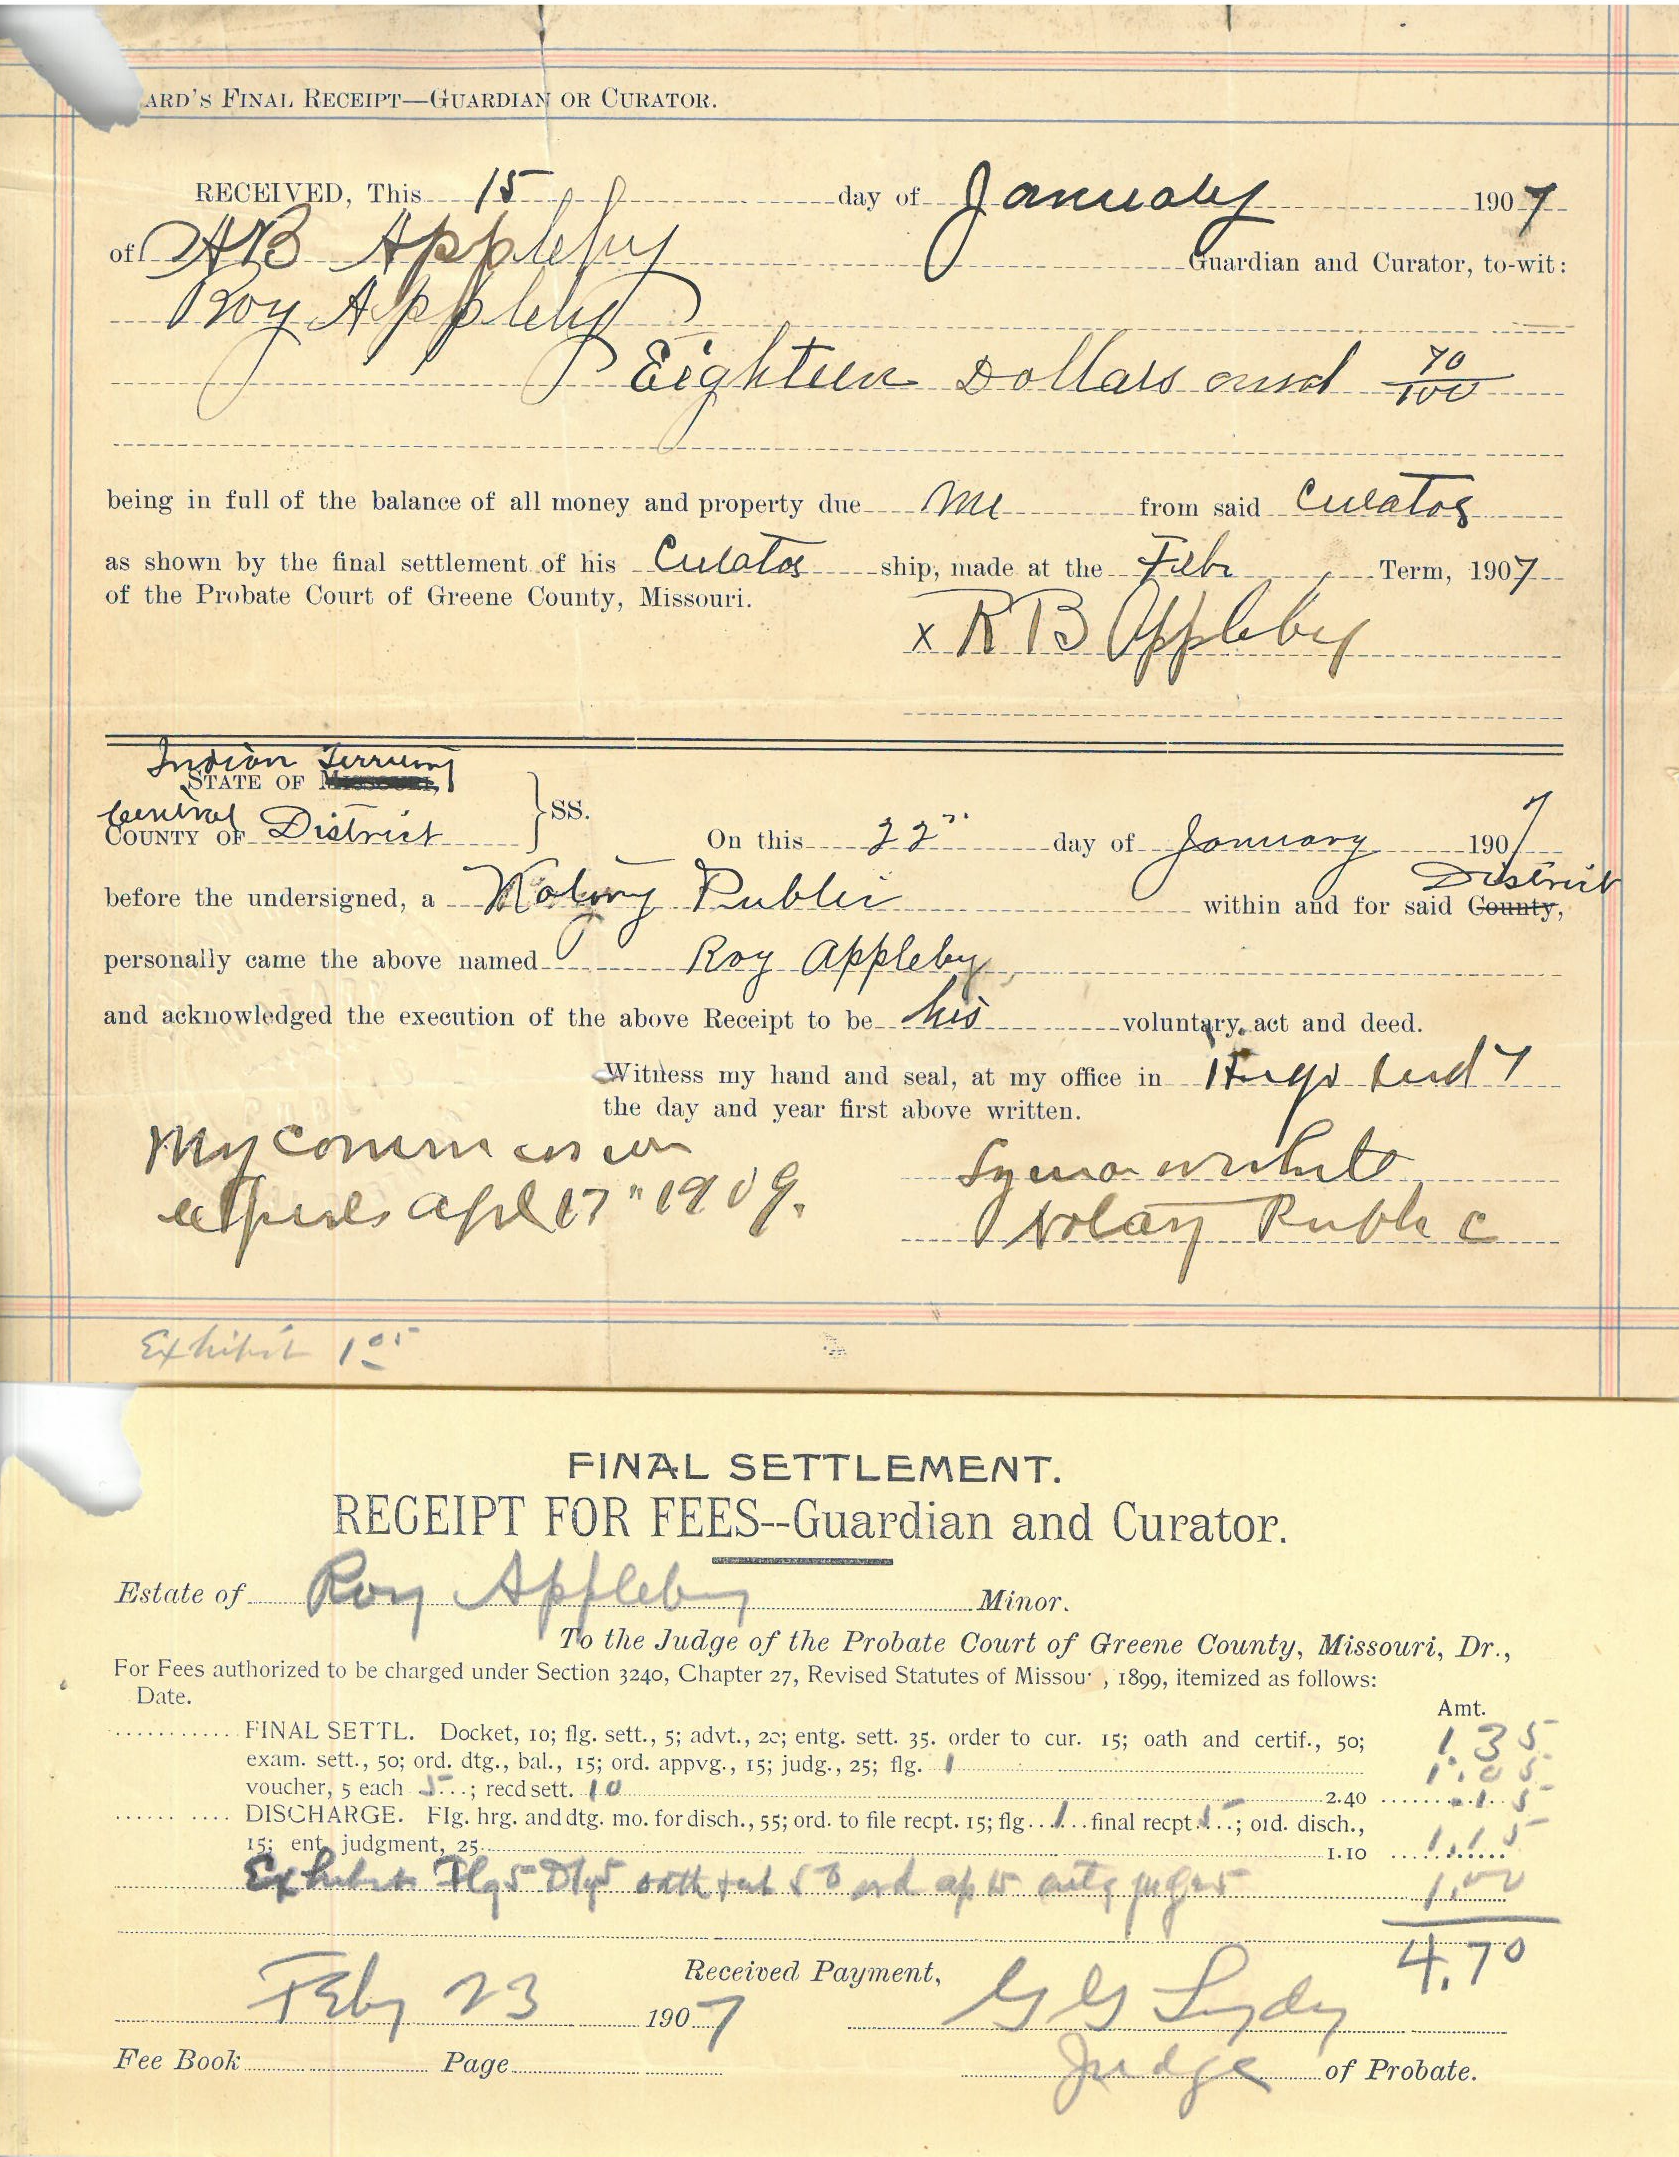 ARD'S FINAL RECEIPT—GUARDIAN OR CURATOR.
RECEIVED, This 15 day of January 1907
of A B Appleby Guardian and Curator, to-wit:
Roy Appleby
Eighteen Dollars and 70/100
being in full of the balance of all money and property due me from said Curator
as shown by the final settlement of his Curator ship, made at the Febr Term, 1907
of the Probate Court of Greene County, Missouri.
x R B Appleby
Indian Territory
STATE OF Missouri,
Central
COUNTY OF District
SS.
On this 22" day of January 1907
District
before the undersigned, a Notary Public within and for said County,
personally came the above named Roy Appleby
and acknowledged the execution of the above Receipt to be his voluntary act and deed.
Witness my hand and seal, at my office in Hugo Ind T
the day and year first above written.
My commission
expires Apl 17" 1909.
White
Notary Public
Exhibit 1 05
FINAL SETTLEMENT.
RECEIPT FOR FEES--Guardian and Curator.
Estate of Roy Appleby Minor.
To the Judge of the Probate Court of Greene County, Missouri, Dr.,
For Fees authorized to be charged under Section 3240, Chapter 27, Revised Statutes of Missou , 1899, itemized as follows:
Date.
Amt.
FINAL SETTL. Docket, 10; flg. sett., 5; advt., 20; entg. sett. 35. order to cur. 15; oath and certif., 50; 1.35
exam. sett., 50; ord. dtg., bal., 15; ord. appvg., 15; judg., 25; flg. 1 1.05
voucher, 5 each 5; recd sett. 10 2.40 .15
DISCHARGE. Flg. hrg. and dtg. mo. for disch., 55; ord. to file recpt. 15; flg 1 final recpt 5; ord. disch.,
15; ent. judgment, 25 1.10 1.15
Exhibit Flg 5 oath + 50 ord ap 15 1.00
4.70
Feby 23 1907
Received Payment, G G Lydy
Fee Book Page Judge of Probate.